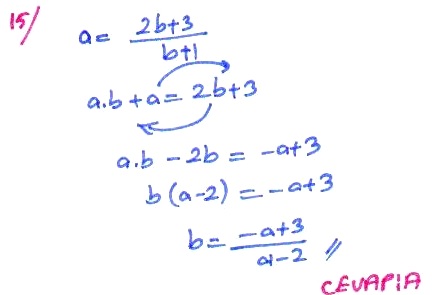 15/ a = (2b+3)/(b+1)
a.b + a = 2b+3
a.b - 2b = -a+3
b(a-2) = -a+3
b = (-a+3)/(a-2) //
CEVAP:A